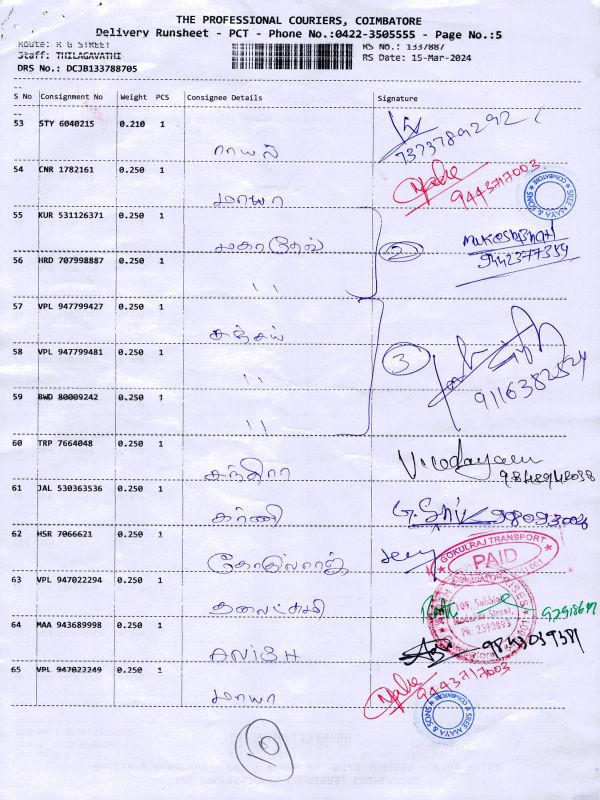 THE PROFESSIONAL COURIERS, COIMBATORE
Delivery Runsheet - PCT - Phone No.:0422-3505555 - Page No.:5
Route: R G STREET
RS No.: 1337887
Staff: THILAGAVATHI
RS Date: 15-Mar-2024
DRS No.: DCJB133788705
S No Consignment No Weight PCS Consignee Details Signature
53 STY 6040215 0.210 1
ராயல்
7373789292
54 CNR 1782161 0.250 1
மாயா
9443717003
SREE MAYA & SONS COIMBATORE
55 KUR 531126371 0.250 1
மகாதேவ்
2
Mukesh Bhati
9442377359
56 HRD 707998887 0.250 1
''
57 VPL 947799427 0.250 1
சஞ்சய்
58 VPL 947799481 0.250 1
''
3
9116382524
59 BWD 80009242 0.250 1
''
60 TRP 7664048 0.250 1
சந்திரா
61 JAL 530363536 0.250 1
கர்ணி
62 HSR 7066621 0.250 1
கோகுல்ராஜ்
GOKULRAJ TRANSPORT
PAID
63 VPL 947022294 0.250 1
தலைட்சுமி
Ph: 2393893
64 MAA 943689998 0.250 1
9843039381
65 VPL 947022249 0.250 1
மாயா
9443717003
SREE MAYA & SONS COIMBATORE
10